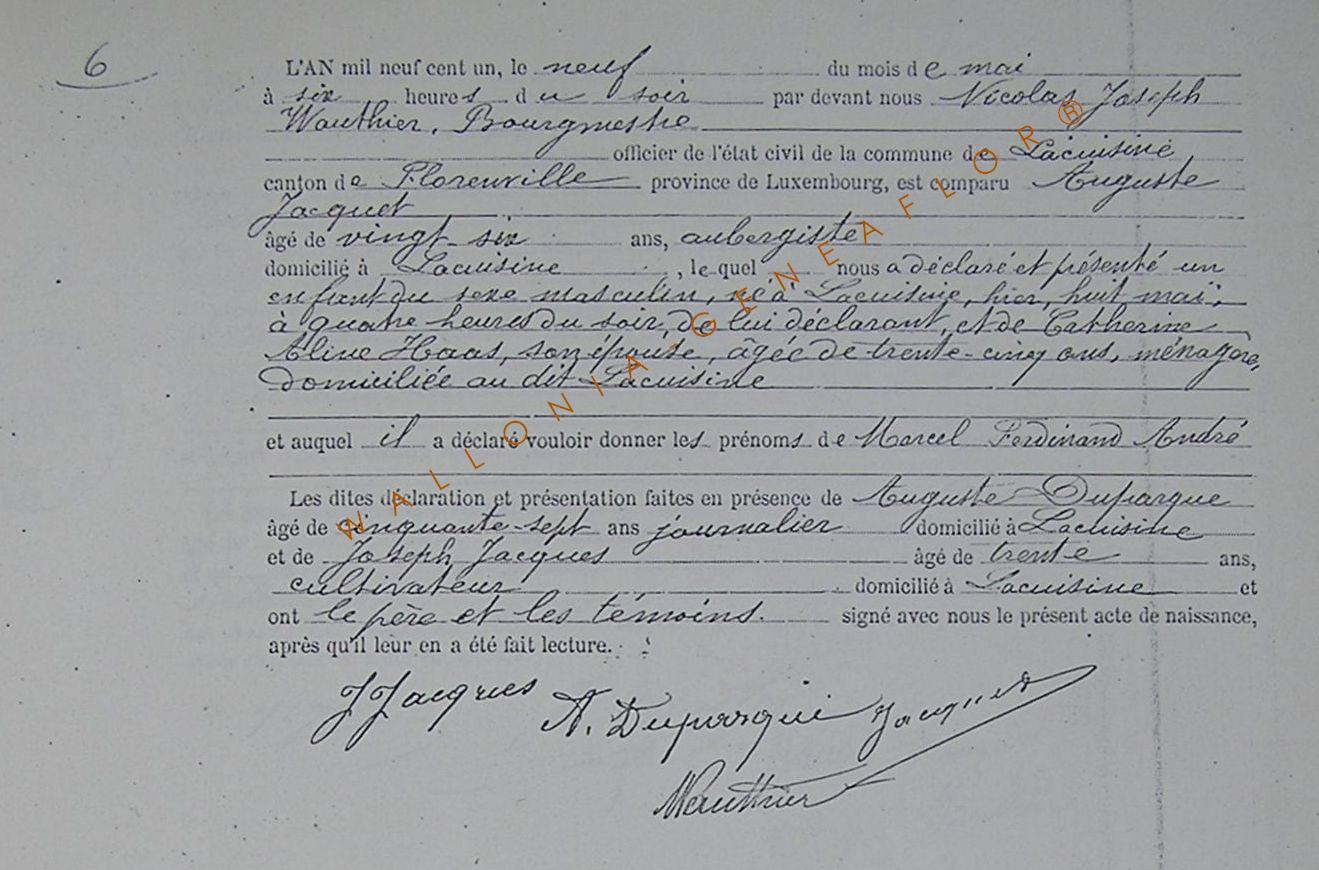 6
L'AN mil neuf cent un, le neuf du mois de mai
à six heures du soir par devant nous Nicolas Joseph
Wauthier, Bourgmestre
officier de l'état civil de la commune de Lacuisine
canton de Florenville province de Luxembourg, est comparu Auguste
Jacquet
âgé de vingt-six ans, aubergiste
domicilié à Lacuisine, lequel nous a déclaré et présenté un
enfant du sexe masculin, né à Lacuisine, hier, huit mai,
à quatre heures du soir, de lui déclarant, et de Catherine
Aline Haas, son épouse, âgée de trente-cinq ans, ménagère,
domiciliée au dit Lacuisine
et auquel il a déclaré vouloir donner les prénoms de Marcel Ferdinand André
Les dites déclaration et présentation faites en présence de Auguste Duparque
âgé de cinquante-sept ans journalier domicilié à Lacuisine
et de Joseph Jacques âgé de trente ans,
cultivateur domicilié à Lacuisine et
ont le père et les témoins. signé avec nous le présent acte de naissance,
après qu'il leur en a été fait lecture.
J Jacques A. Duparque Jacquet
Wauthier
WALLONIA.GENEAFLOR®